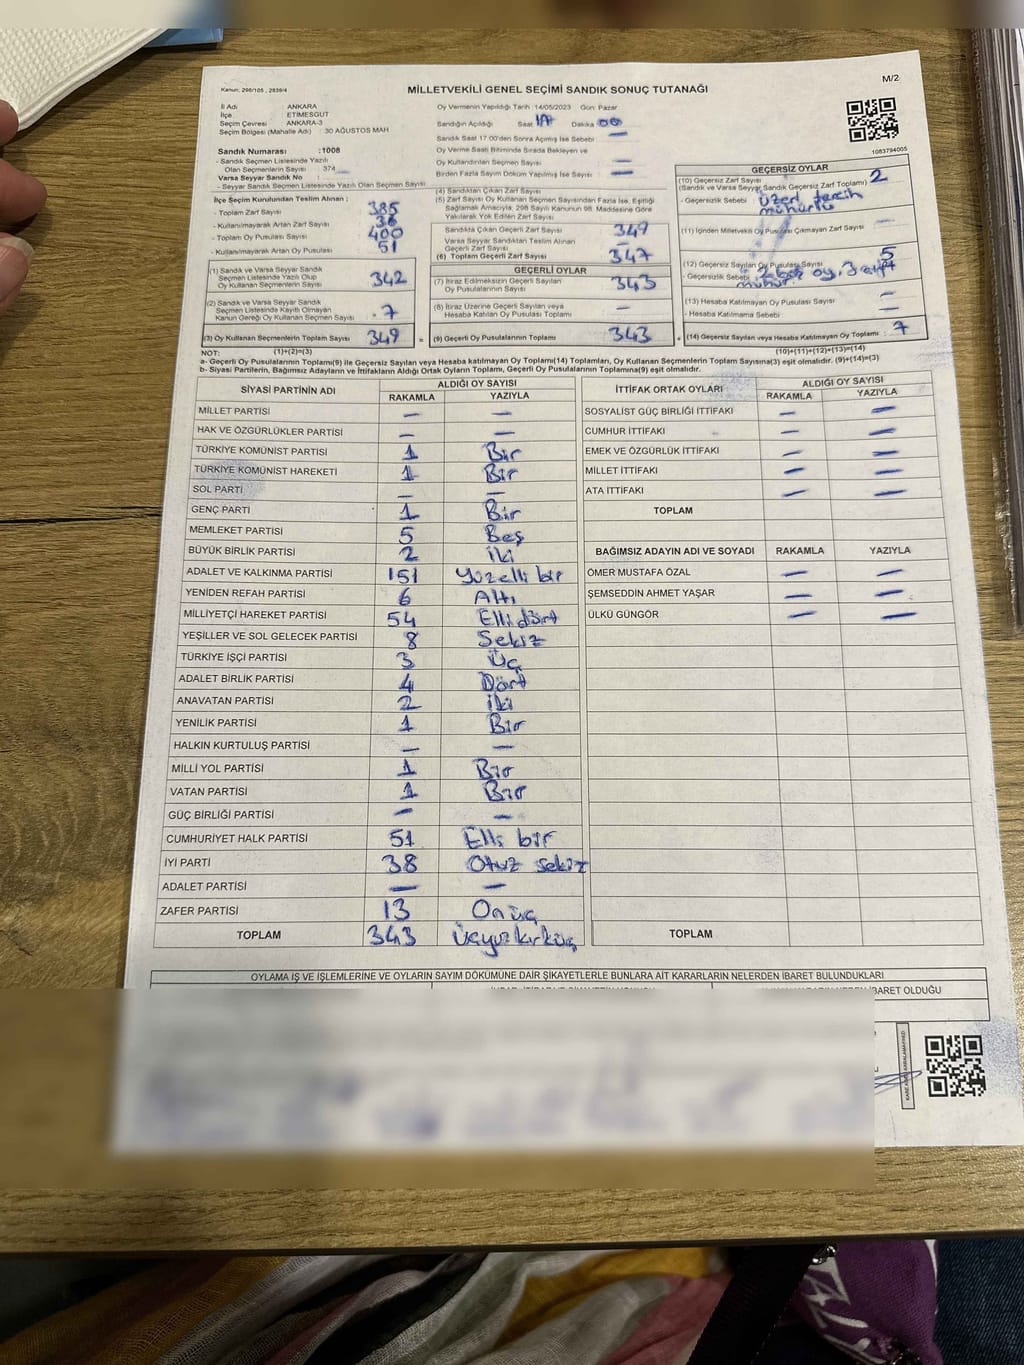 Kanun: 298/105 , 2839/4
MİLLETVEKİLİ GENEL SEÇİMİ SANDIK SONUÇ TUTANAĞI
M/2
İl Adı : ANKARA
İlçe : ETIMESGUT
Seçim Çevresi : ANKARA-3
Seçim Bölgesi (Mahalle Adı) : 30 AĞUSTOS MAH
Oy Vermenin Yapıldığı Tarih :14/05/2023 Gün: Pazar
Sandığın Açıldığı Saat 17 Dakika 00
Sandık Saat 17:00'den Sonra Açılmış İse Sebebi : —
Oy Verme Saati Bitiminde Sırada Bekleyen ve
Oy Kullandırılan Seçmen Sayısı —
Birden Fazla Sayım Döküm Yapılmış İse Sayısı : —
1083794005
Sandık Numarası :1008
- Sandık Seçmen Listesinde Yazılı
Olan Seçmenlerin Sayısı : 374
Varsa Seyyar Sandık No :
- Seyyar Sandık Seçmen Listesinde Yazılı Olan Seçmen Sayısı :
İlçe Seçim Kurulundan Teslim Alınan :
- Toplam Zarf Sayısı : 385
- Kullanılmayarak Artan Zarf Sayısı : 36
- Toplam Oy Pusulası Sayısı : 400
- Kullanılmayarak Artan Oy Pusulası : 51
(1) Sandık ve Varsa Seyyar Sandık
Seçmen Listesinde Yazılı Olup
Oy Kullanan Seçmenlerin Sayısı 342
(2) Sandık ve Varsa Seyyar Sandık
Seçmen Listesinde Kayıtlı Olmayan
Kanun Gereği Oy Kullanan Seçmen Sayısı 7
(3) Oy Kullanan Seçmenlerin Toplam Sayısı 349
(4) Sandıktan Çıkan Zarf Sayısı
(5) Zarf Sayısı Oy Kullanan Seçmen Sayısından Fazla İse, Eşitliği
Sağlamak Amacıyla, 298 Sayılı Kanunun 98. Maddesine Göre
Yakılarak Yok Edilen Zarf Sayısı
Sandıkta Çıkan Geçerli Zarf Sayısı 349
Varsa Seyyar Sandıktan Teslim Alınan
Geçerli Zarf Sayısı —
(6) Toplam Geçerli Zarf Sayısı 347
GEÇERLİ OYLAR
(7) İtiraz Edilmeksizin Geçerli Sayılan
Oy Pusulalarının Sayısı 343
(8) İtiraz Üzerine Geçerli Sayılan veya
Hesaba Katılan Oy Pusulası Toplamı —
= (9) Geçerli Oy Pusulalarının Toplamı 343
GEÇERSİZ OYLAR
(10) Geçersiz Zarf Sayısı 2
(Sandık ve Varsa Seyyar Sandık Geçersiz Zarf Toplamı)
- Geçersizlik Sebebi : üzeri tercih
mühürlü
(11) İçinden Milletvekili Oy Pusulası Çıkmayan Zarf Sayısı —
(12) Geçersiz Sayılan Oy Pusulası Sayısı 5
- Geçersizlik Sebebi
(13) Hesaba Katılmayan Oy Pusulası Sayısı —
- Hesaba Katılmama Sebebi : —
+ (14) Geçersiz Sayılan veya Hesaba Katılmayan Oy Toplamı : 7
NOT: (1)+(2)=(3) (10)+(11)+(12)+(13)=(14)
a- Geçerli Oy Pusulalarının Toplamı(9) ile Geçersiz Sayılan veya Hesaba katılmayan Oy Toplamı(14) Toplamları, Oy Kullanan Seçmenlerin Toplam Sayısına(3) eşit olmalıdır. (9)+(14)=(3)
b- Siyasi Partilerin, Bağımsız Adayların ve İttifakların Aldığı Ortak Oyların Toplamı, Geçerli Oy Pusulalarının Toplamına(9) eşit olmalıdır.
SİYASİ PARTİNİN ADI ALDIĞI OY SAYISI
RAKAMLA YAZIYLA
MİLLET PARTİSİ — —
HAK VE ÖZGÜRLÜKLER PARTİSİ — —
TÜRKİYE KOMÜNİST PARTİSİ 1 Bir
TÜRKİYE KOMÜNİST HAREKETİ 1 Bir
SOL PARTİ — —
GENÇ PARTİ 1 Bir
MEMLEKET PARTİSİ 5 Beş
BÜYÜK BİRLİK PARTİSİ 2 iki
ADALET VE KALKINMA PARTİSİ 151 Yüzelli bir
YENİDEN REFAH PARTİSİ 6 Altı
MİLLİYETÇİ HAREKET PARTİSİ 54 Elli dört
YEŞİLLER VE SOL GELECEK PARTİSİ 8 Sekiz
TÜRKİYE İŞÇİ PARTİSİ 3 Üç
ADALET BİRLİK PARTİSİ 4 Dört
ANAVATAN PARTİSİ 2 iki
YENİLİK PARTİSİ 1 Bir
HALKIN KURTULUŞ PARTİSİ — —
MİLLİ YOL PARTİSİ 1 Bir
VATAN PARTİSİ 1 Bir
GÜÇ BİRLİĞİ PARTİSİ — —
CUMHURİYET HALK PARTİSİ 51 Elli bir
İYİ PARTİ 38 Otuz sekiz
ADALET PARTİSİ — —
ZAFER PARTİSİ 13 Onüç
TOPLAM 343 Üçyüzkırküç
İTTİFAK ORTAK OYLARI ALDIĞI OY SAYISI
RAKAMLA YAZIYLA
SOSYALİST GÜÇ BİRLİĞİ İTTİFAKI — —
CUMHUR İTTİFAKI — —
EMEK VE ÖZGÜRLÜK İTTİFAKI — —
MİLLET İTTİFAKI — —
ATA İTTİFAKI — —
TOPLAM
BAĞIMSIZ ADAYIN ADI VE SOYADI RAKAMLA YAZIYLA
ÖMER MUSTAFA ÖZAL — —
ŞEMSEDDİN AHMET YAŞAR — —
ÜLKÜ GÜNGÖR — —
TOPLAM
OYLAMA İŞ VE İŞLEMLERİNE VE OYLARIN SAYIM DÖKÜMÜNE DAİR ŞİKAYETLERLE BUNLARA AİT KARARLARIN NELERDEN İBARET BULUNDUKLARI
İBARET OLDUĞU